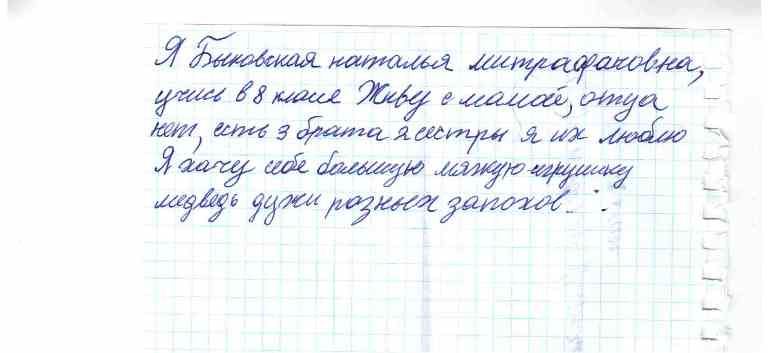 Я Быковская наталья митрафановна,
учусь в 8 класе Живу с мамой, отца
нет, есть 3 брата 2 сестры я их люблю
Я хачу себе большую мяхкую игрушку
медведь духи розных запохов